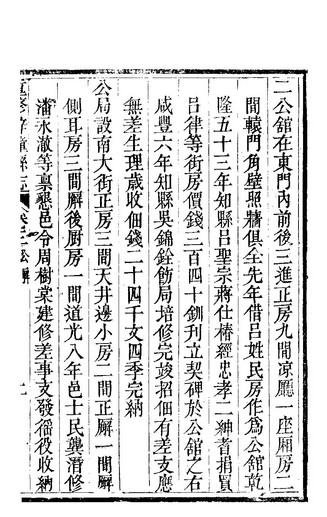 二公舘在東門內前後三進正房九間凉廳一座厢房二
間轅門角壁照牆俱全先年借呂姓民房作爲公舘乾
隆五十三年知縣呂聖宗蔣仕椿經忠孝二紳耆捐買
呂律等街房價錢三百四十釧刋立契碑於公舘之右
咸豐六年知縣吳錦銓飭局培修完竣招佃有差支應
無差生理歲收佃錢二十四千文四季完納
公局設南大街正房三間天井邊小房二間正廨一間
側耳房三間廨後厨房一間道光八年邑士民龔溍修
潘永澈等稟懇邑令周樹棠建修差事支發徭役收納